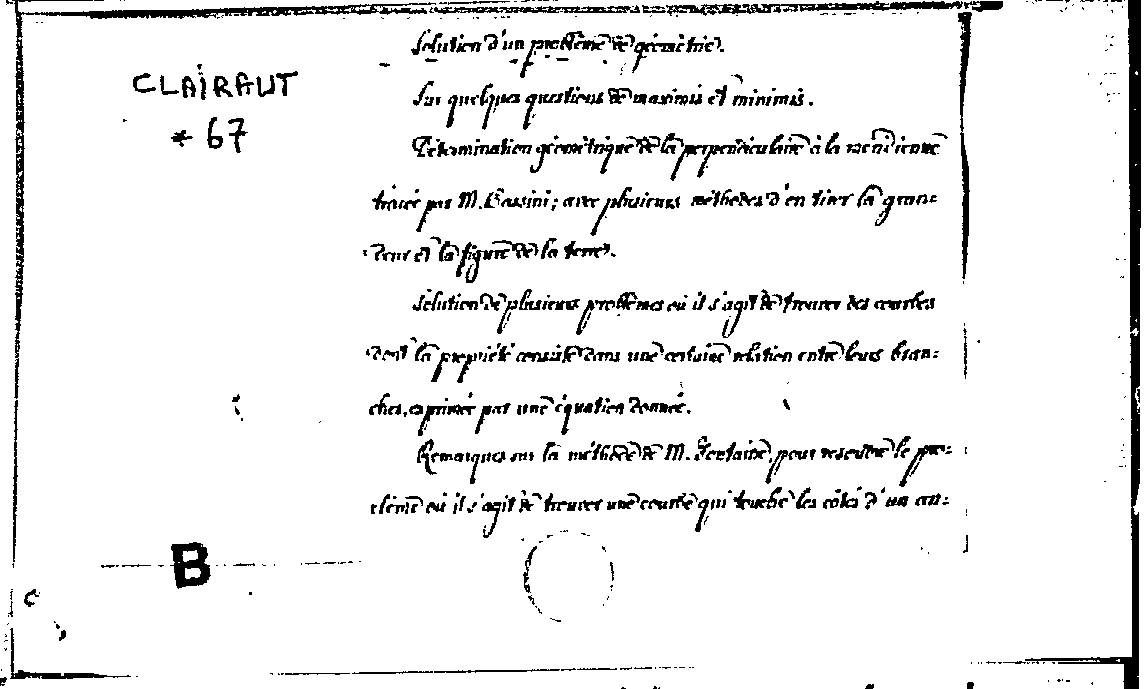 CLAIRAUT
* 67
Solution d'un problême de géométrie.
Sur quelques questions de maximis et minimis.
Détermination géométrique de la perpendiculaire à la méridienne
tracée par M. Cassini; avec plusieurs méthodes d'en tirer la gran=
=deur et la figure de la terre.
Solution de plusieurs problêmes où il s'agit de trouver des courbes
dont la propriété consiste dans une certaine relation entre leurs bran=
ches, exprimée par une équation donnée.
Remarques sur la méthode de M. Fontaine, pour resoudre le pro=
=blême où il s'agit de trouver une courbe qui touche les côtés d'un an=
B
C